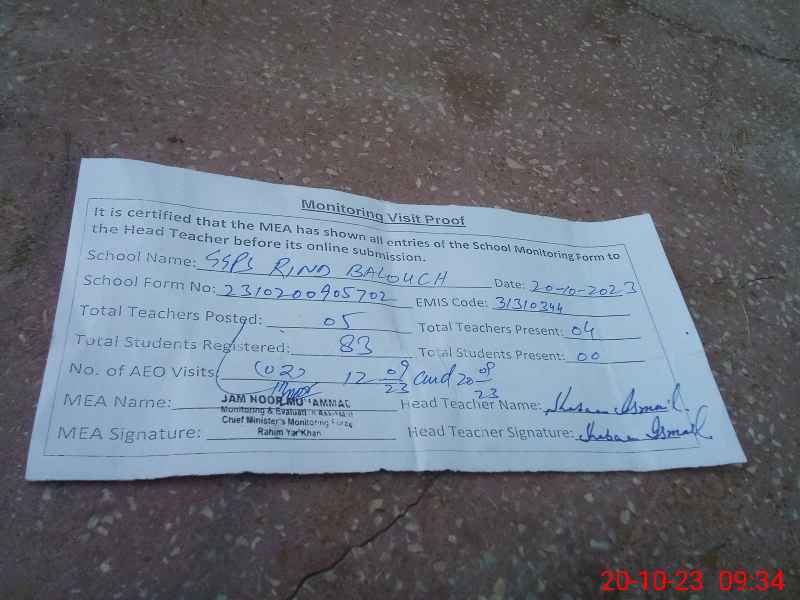 Monitoring Visit Proof
It is certified that the MEA has shown all entries of the School Monitoring Form to
the Head Teacher before its online submission.
School Name: GGPS RIND BALOUCH Date: 20-10-2023
School Form No: 2310200905702 EMIS Code: 31310344
Total Teachers Posted: 05 Total Teachers Present: 04
Total Students Registered: 83 Total Students Present: 00
No. of AEO Visits: (02) 12-09/23 and 20-09/23
MEA Name: JAM NOOR MUHAMMAD Head Teacher Name: Ismail
Monitoring & Evaluation Assistant
Chief Minister's Monitoring Force
MEA Signature: Rahim Yar Khan Head Teacher Signature: Ismail
20-10-23 09:34